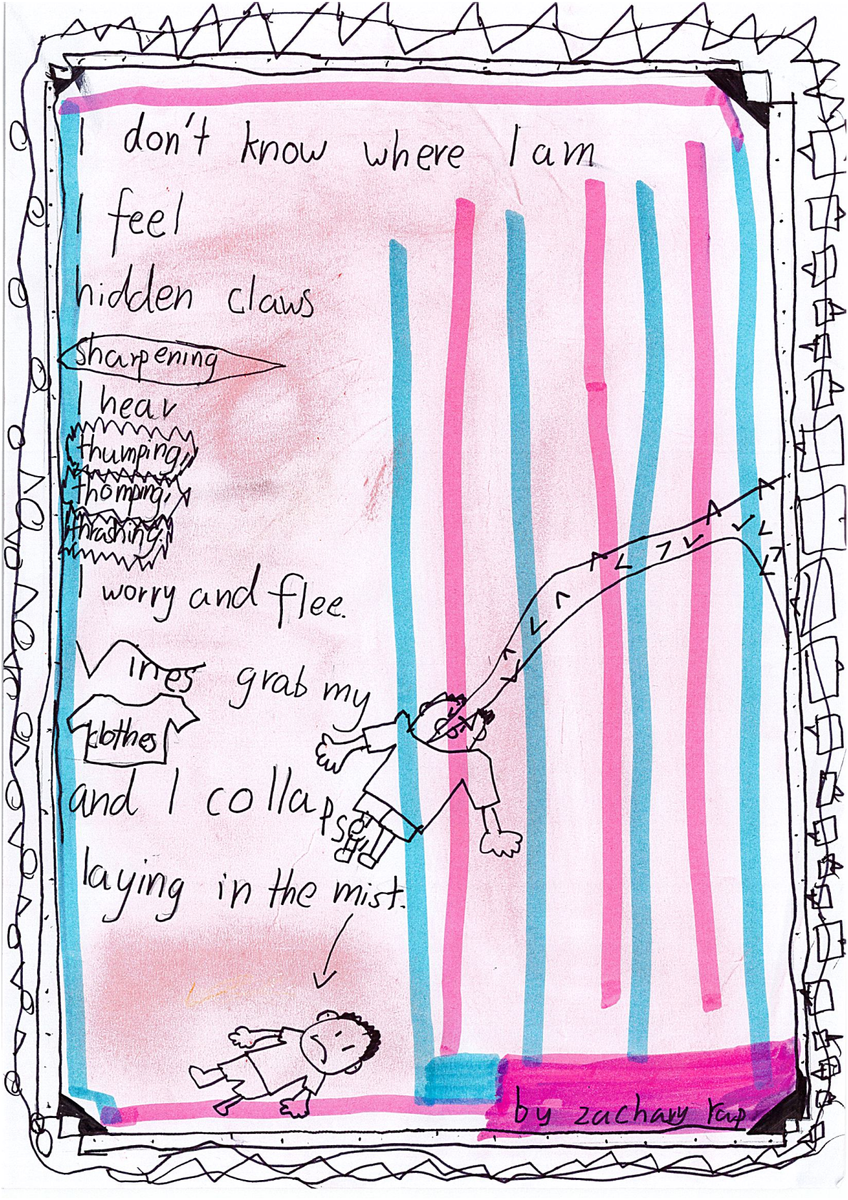 I don't know where I am
I feel
hidden claws
sharpening
I hear
thumping,
thomping,
thrashing.
I worry and flee.
Vines grab my
clothes
and I collapse
laying in the mist.
by zachary rap